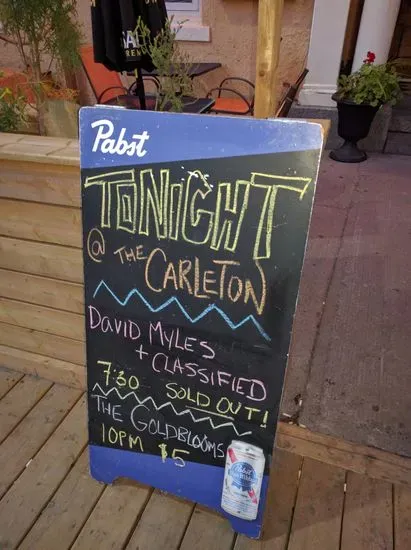 Pabst
TONIGHT
@ THE CARLETON
DAVID MYLES
+ CLASSIFIED
7:30 SOLD OUT!
THE GOLDBLOOMS
10PM $5
Pabst